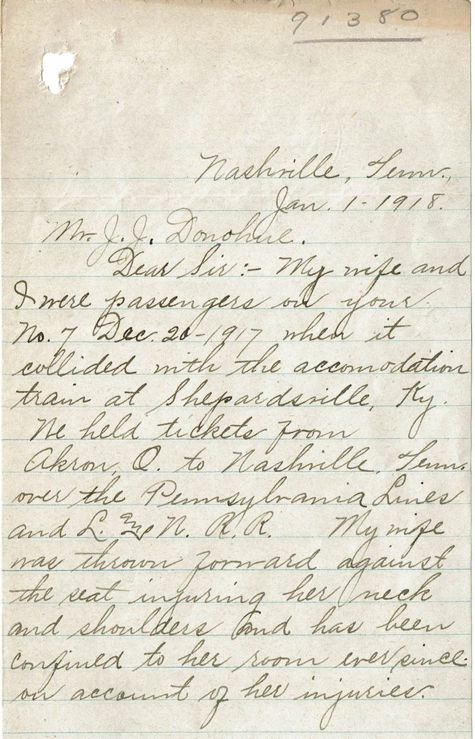 91380
Nashville, Tenn.,
Jan. 1-1918.
Mr. J. J. Donohue.
Dear Sir:- My wife and
I were passengers on your
No. 7 Dec. 20-1917 when it
collided with the accomodation
train at Shepardsville, Ky.
We held tickets from
Akron, O. to Nashville, Tenn.
over the Pennsylvania Lines
and L. & N. R. R. My wife
was thrown forward against
the seat injuring her neck
and shoulders and has been
confined to her room ever since
on account of her injuries.